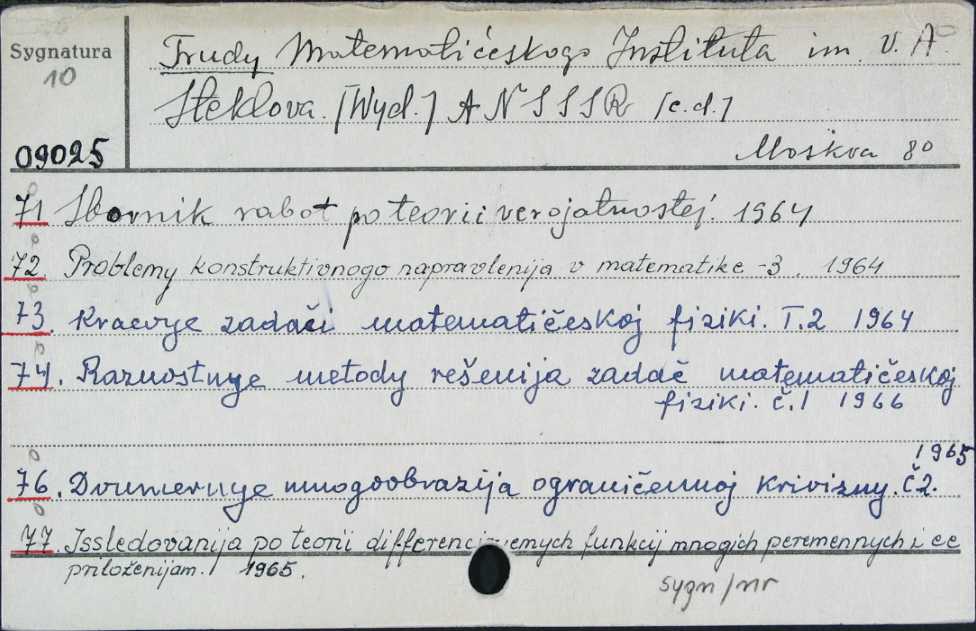 Sygnatura
10
09025
Trudy Matematićeskogo Instituta im. V. A.
Steklova. [Wyd.] AN SSSR [c.d.]
Moskva 80
71 Sbornik rabot po teorii verojatnostej. 1964
72. Problemy konstruktivnogo napravlenija v matematike -3. 1964
73. Kraevye zadači matematičeskoj fiziki. T.2 1964
74. Raznostnye metody rešenija zadač matematičeskoj
fiziki. č.1 1966
1965
76. Dvumernye mnogoobrazija ograničennoj krivizny. Č2.
77. Issledovanija po teorii differenciruemych funkcij mnogich peremennych i ee
priloženijam. 1965.
sygn/nr